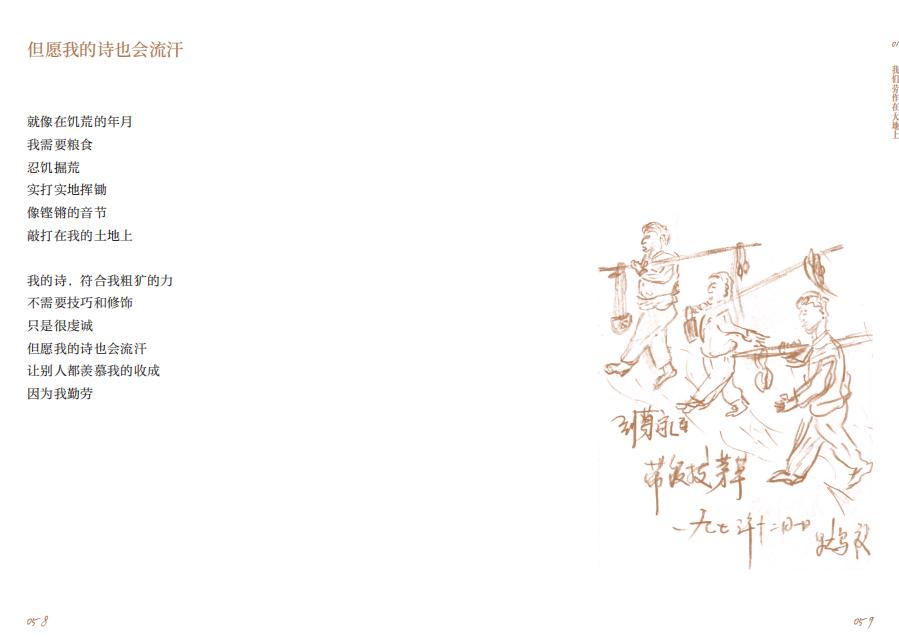 但愿我的诗也会流汗
就像在饥荒的年月
我需要粮食
忍饥掘荒
实打实地挥锄
像铿锵的音节
敲打在我的土地上
我的诗，符合我粗犷的力
不需要技巧和修饰
只是很虔诚
但愿我的诗也会流汗
让别人都羡慕我的收成
因为我勤劳
058
01
我们劳作在大地上
茅草
059